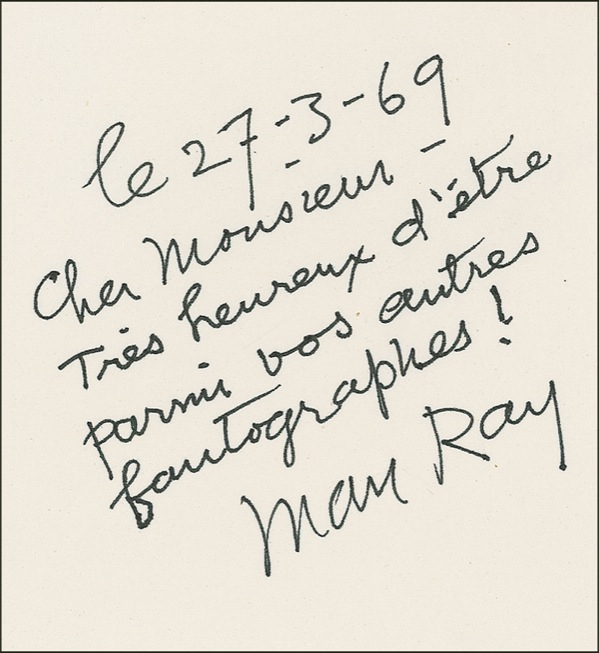 le 27-3-69
Cher Monsieur -
Très heureux d'être
parmi vos autres
fautographes!
Man Ray